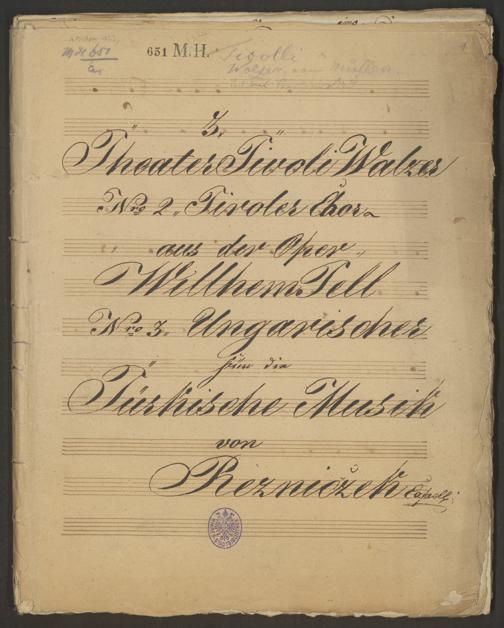 651 M.H.
Tivolli
1
3.
Theater Tivoli Walzer
Nro 2. Tiroler Chor
aus der Oper
Willhem Tell
Nro 3. Ungarischer
für die
Türkische Musik
von
Rezniček Capellm: